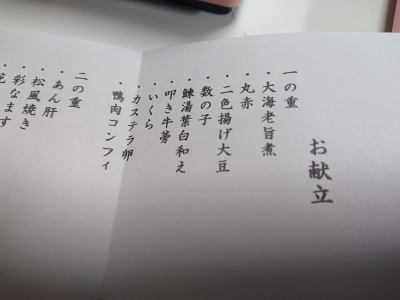 お献立
一の重
・大海老旨煮
・丸赤
・二色揚げ大豆
・数の子
・鰊湯葉白和え
・叩き牛蒡
・いくら
・カステラ卵
・鴨肉コンフィ
二の重
・あん肝
・松風焼き
・彩なます